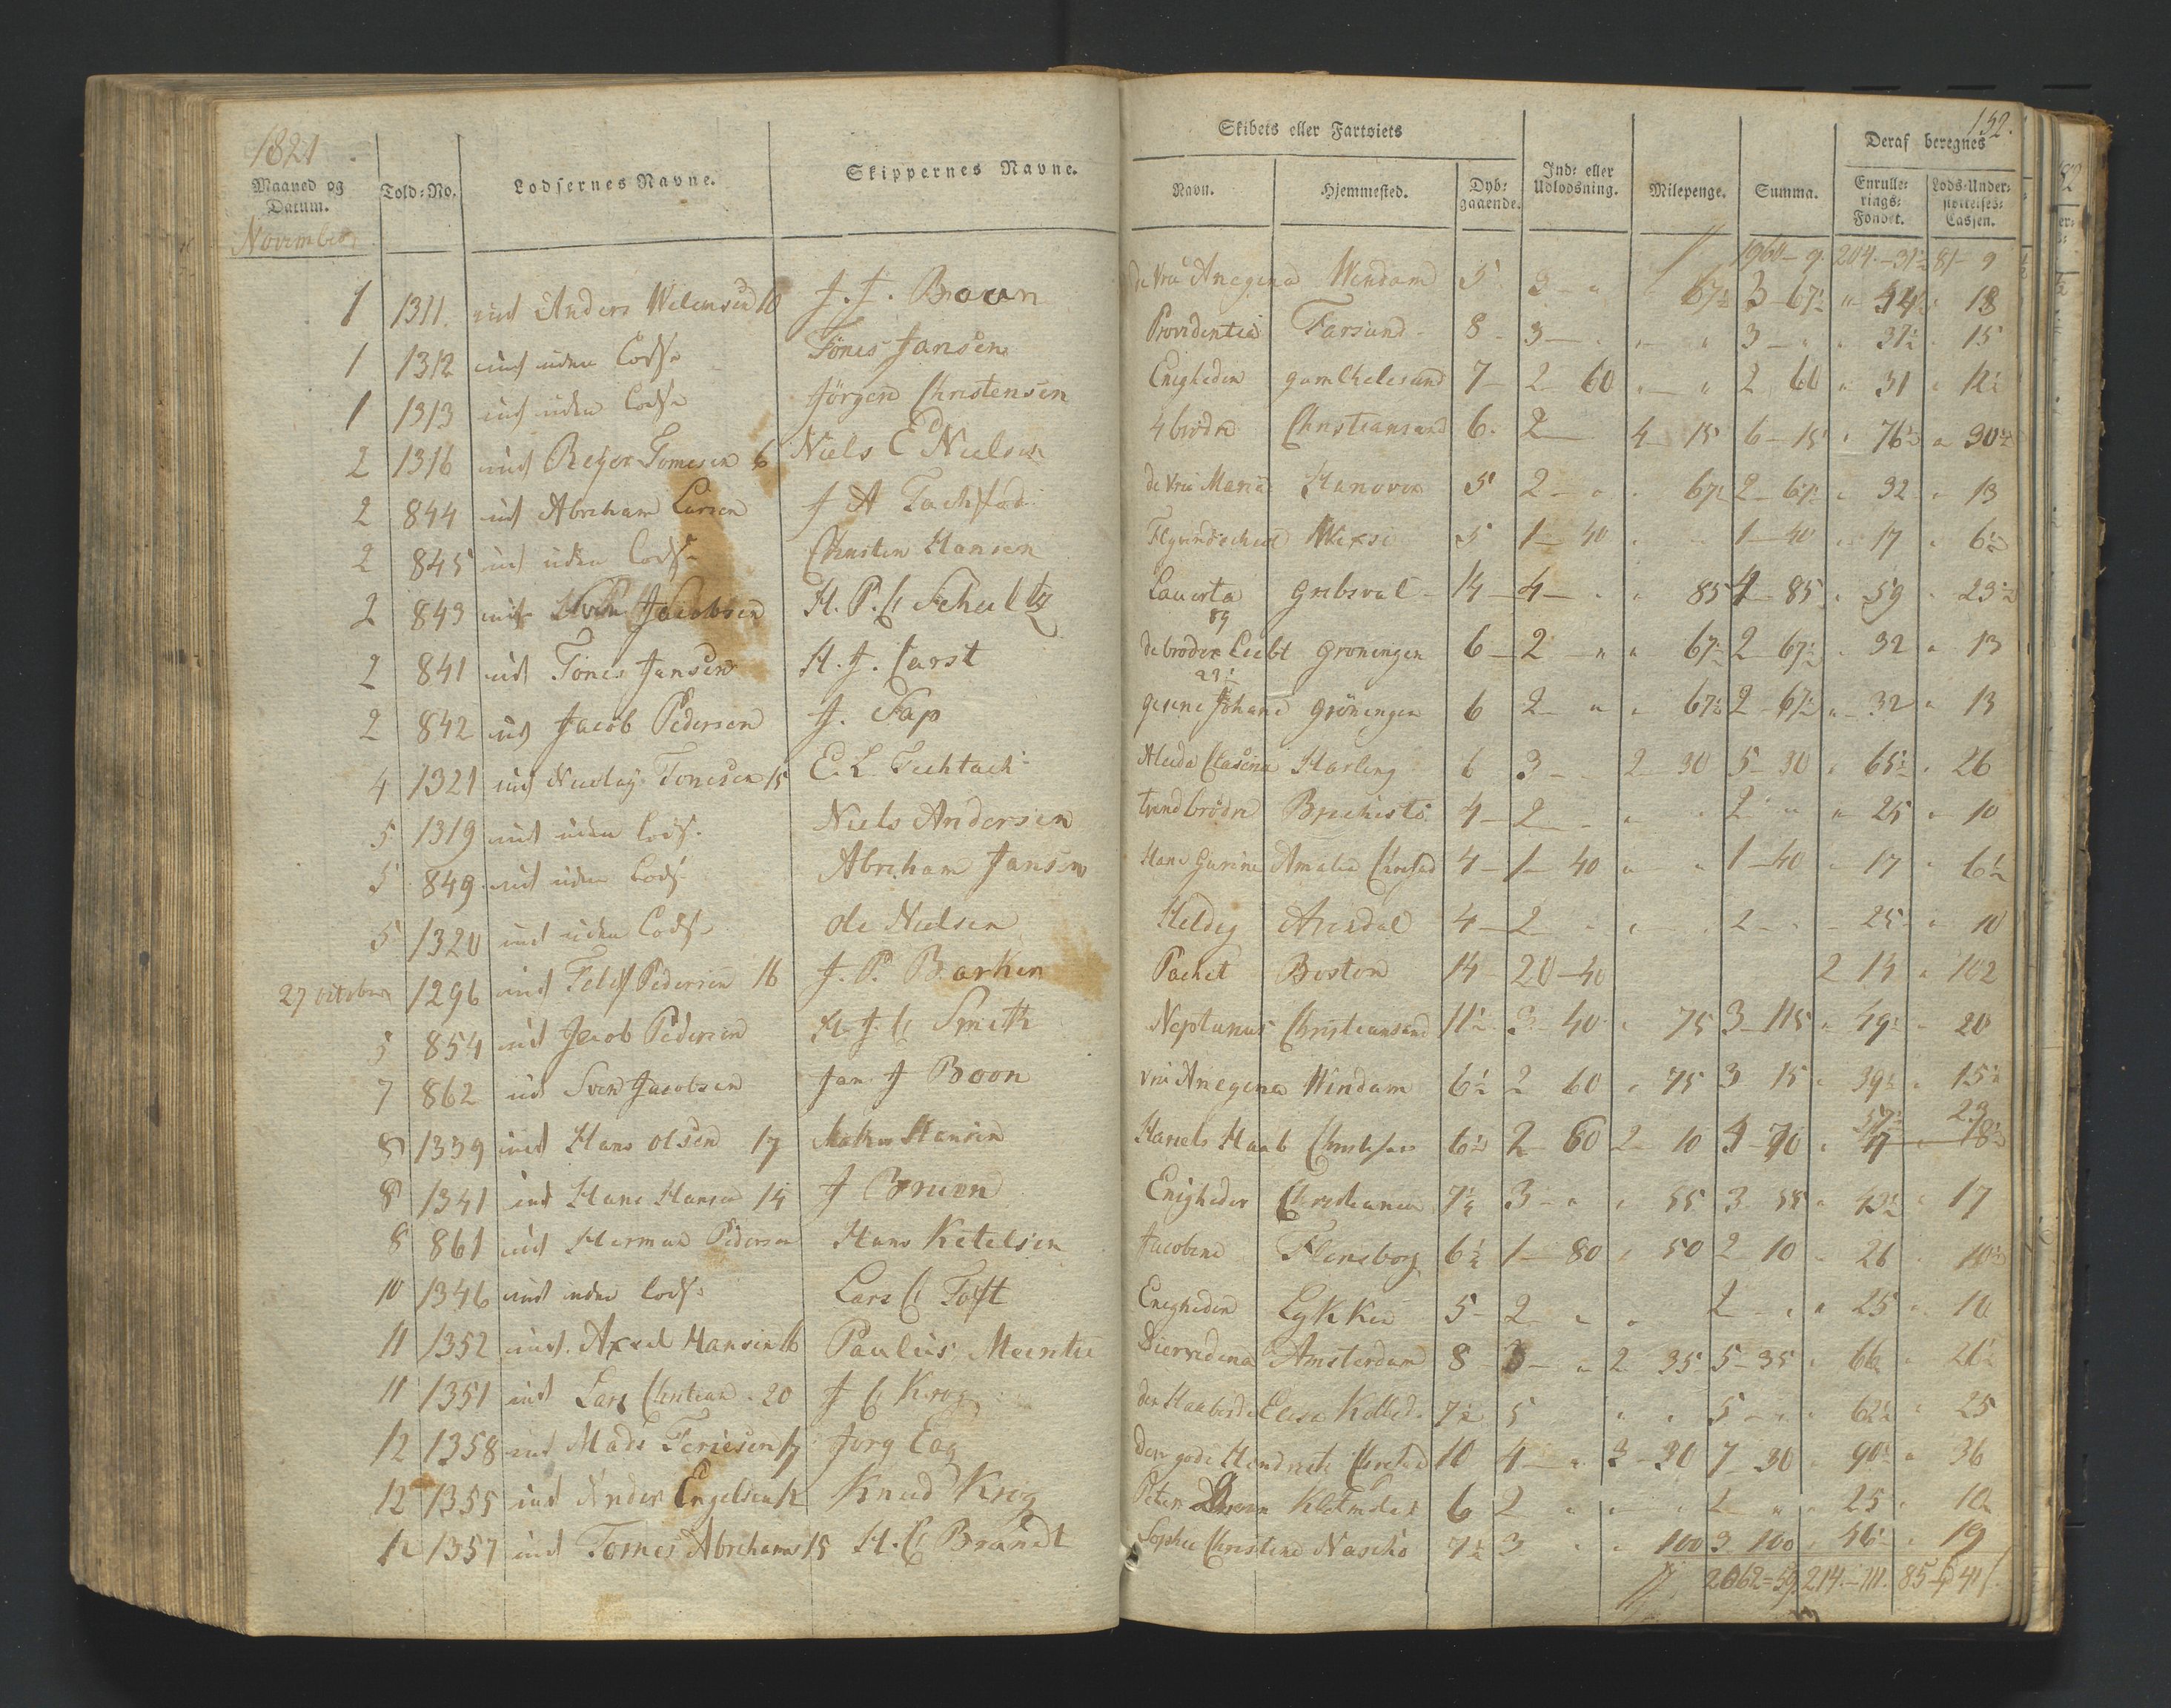 1821
152.
Maaned og Datum.
Told-No.
Lodsernes Navne.
Skippernes Navne.
Skibets eller Fartøiets
Navn.
Hjemmested.
Dyb-gaaende.
Ind- eller Udlodsning.
Milepenge.
Summa.
Deraf beregnes
Enrullerings-Fondet.
Lods-Understøttelses-Cassen.
November
1960 - 9 204 - 31½ 81 - 9
1 1311. ind Anders Welumsen 10 J. J. Boon de Vrü Anegina Windam 5 3 - " " 67½ 3 - 67½ " 44½ " 18
1 1312 ind uden Lods Tönes Jansen Providentia Farsund 8 - 3 - " " - " 3 - " " 37½ " 15
1 1313 ind uden Lods Jörgen Christensen Enigheden gamlhelesund 7 - 2 - 60 " - " 2 60 " 31 " 12½
2 1316 ind Reyer Tomesen 6 Niels C Nielsen 4 brödre Christiansand 6 - 2 - 4 - 15 6 - 15 " 76½ " 30½
2 844 ud Abreham Larsen J A Tachstad de Vrü Maria Hanover 5 2 - " " 67½ 2 - 67½ " 32 " 13
2 845 ud uden Lods Christen Hansen 5 1 - 40 " " 1 - 40 " 17 " 6½
2 843 ud Sven Jacobsen H. P. C Schultz Lauerta Grebsval - 14 - 4 - " " 85 4 - 85 " 59 " 23½
2 841 ud Tönes Jansen H. J. Carst de broder Liebt Groningen 6 - 2 - " " 67½ 2 67½ " 32 " 13
2 842 ud Jacob Pedersen J. Sap Gesine Johane Gröningen 6 2 - " " 67½ 2 - 67½ " 32 " 13
4 1321 ind Nicolay Tonesen 15 E. L. Techtach Aleida Clasina Harling 6 3 - 2 - 30 5 - 30 " 65½ " 26
5 1319 ind uden Lods Niels Andersen trend brödre Brechestö 4 - 2 - " " 2 " " 25 " 10
5 849 ud uden Lods Abreham Jansen Hane Gurine Amalia Chrestsd 4 - 1 - 40 " " 1 - 40 " 17 " 6½
5 1320 ind uden Lods Ole Nielsen Heldig Arendal 4 - 2 - " " 2 - " 25 " 10
27 october 1296 ind Tellef Pedersen 16 J. P. Barken Packet Boston 14 - 20 - 40 2 14 " 102
5 854 ud Jacob Pedersen H. J. C Smith Neptunus Christiansand 11½ 3 - 40 " 75 3 - 115 " 49½ " 20
7 862 ud Sven Jacobsen Jan J Boon Vrü Anegina Windam 6½ 2 60 " 75 3 15 " 39½ " 15½
8 1339 ind Hans Olsen 17 Matheus Hansen Hanels Haab 6½ 2 60 2 - 10 4 - 70 " 57½ 23
8 1341 ind Hans Hansen 14 J Brun Enigheden Christiania 7½ 3 - " " 55 3 55 " 42½ " 17
8 861 ud Herman Pedersen Hans Ketelsen Jacobine Flensborg 6½ 1 - 80 " 50 2 10 - 26 " 10½
10 1346 ind uden Lods Lars C Toft Enegheden Lykken 5 - 2 " " 2 - " " 25 " 10
11 1352 ind. Axsel Hansen 16 Paulus Meintie Dierredina Amsterdam 8 3 - " 2 35 5 - 35 " 66 " 26½
11 1351 ind Lars Chrestian 20 J C Krog den Haabende Elisa 7½ 5 " " 5 - " " 62½ " 25
12 1358 ind Mads Teriesen 17 Jörg Eag den gode Hendrick 10 4 - " 3 - 30 7 - 30 " 90½ " 36
12 1355 ind Anders Engelsen 12 Knud Krog Peter 6 2 " " " 2 " " 25 " 10
12 1357 ind Tomes Abrehams 15 H. C Brandt Sophie Christine Naschö 7½ 3 " " 100 3 100 " 46½ " 19
2062 = 59 214 - 111. 85 - 41